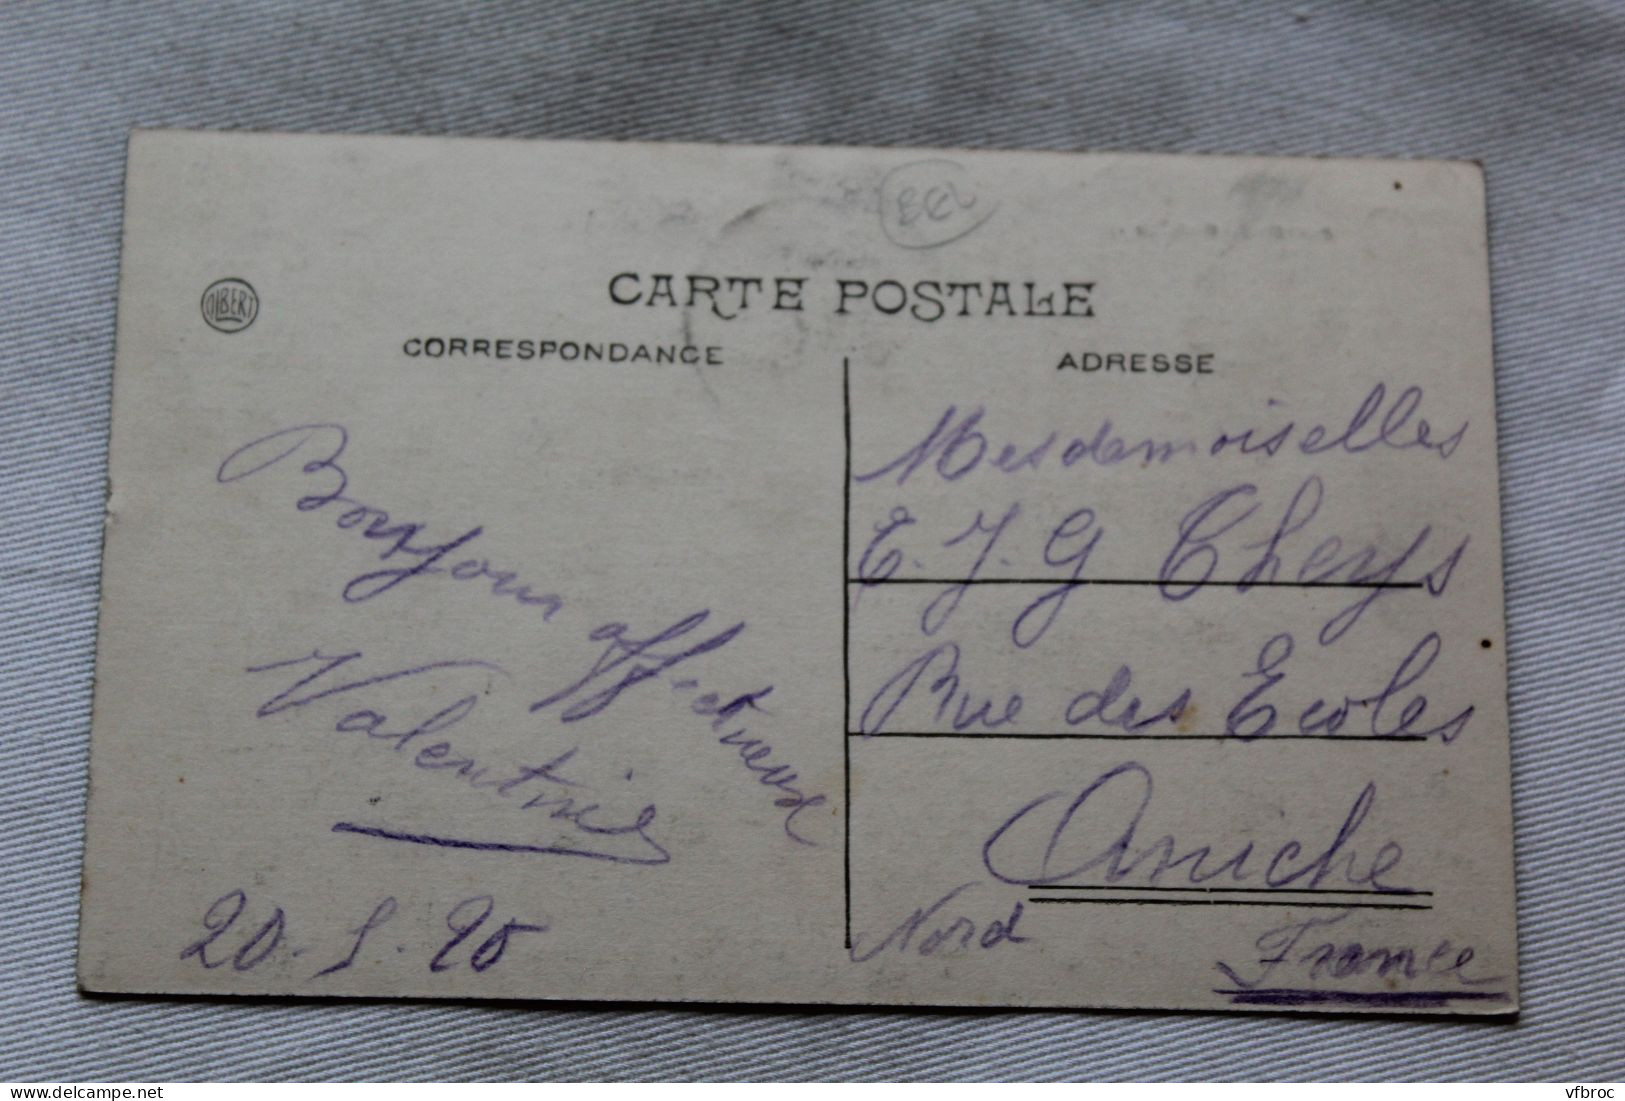 CARTE POSTALE
ALBERT
CORRESPONDANCE
ADRESSE
Bonjour affectueux
Valentine
20.5.20
Mesdemoiselles
E. J. G Cheys
Rue des Ecoles
Aniche
Nord
France
www.delcampe.net
vfbroc